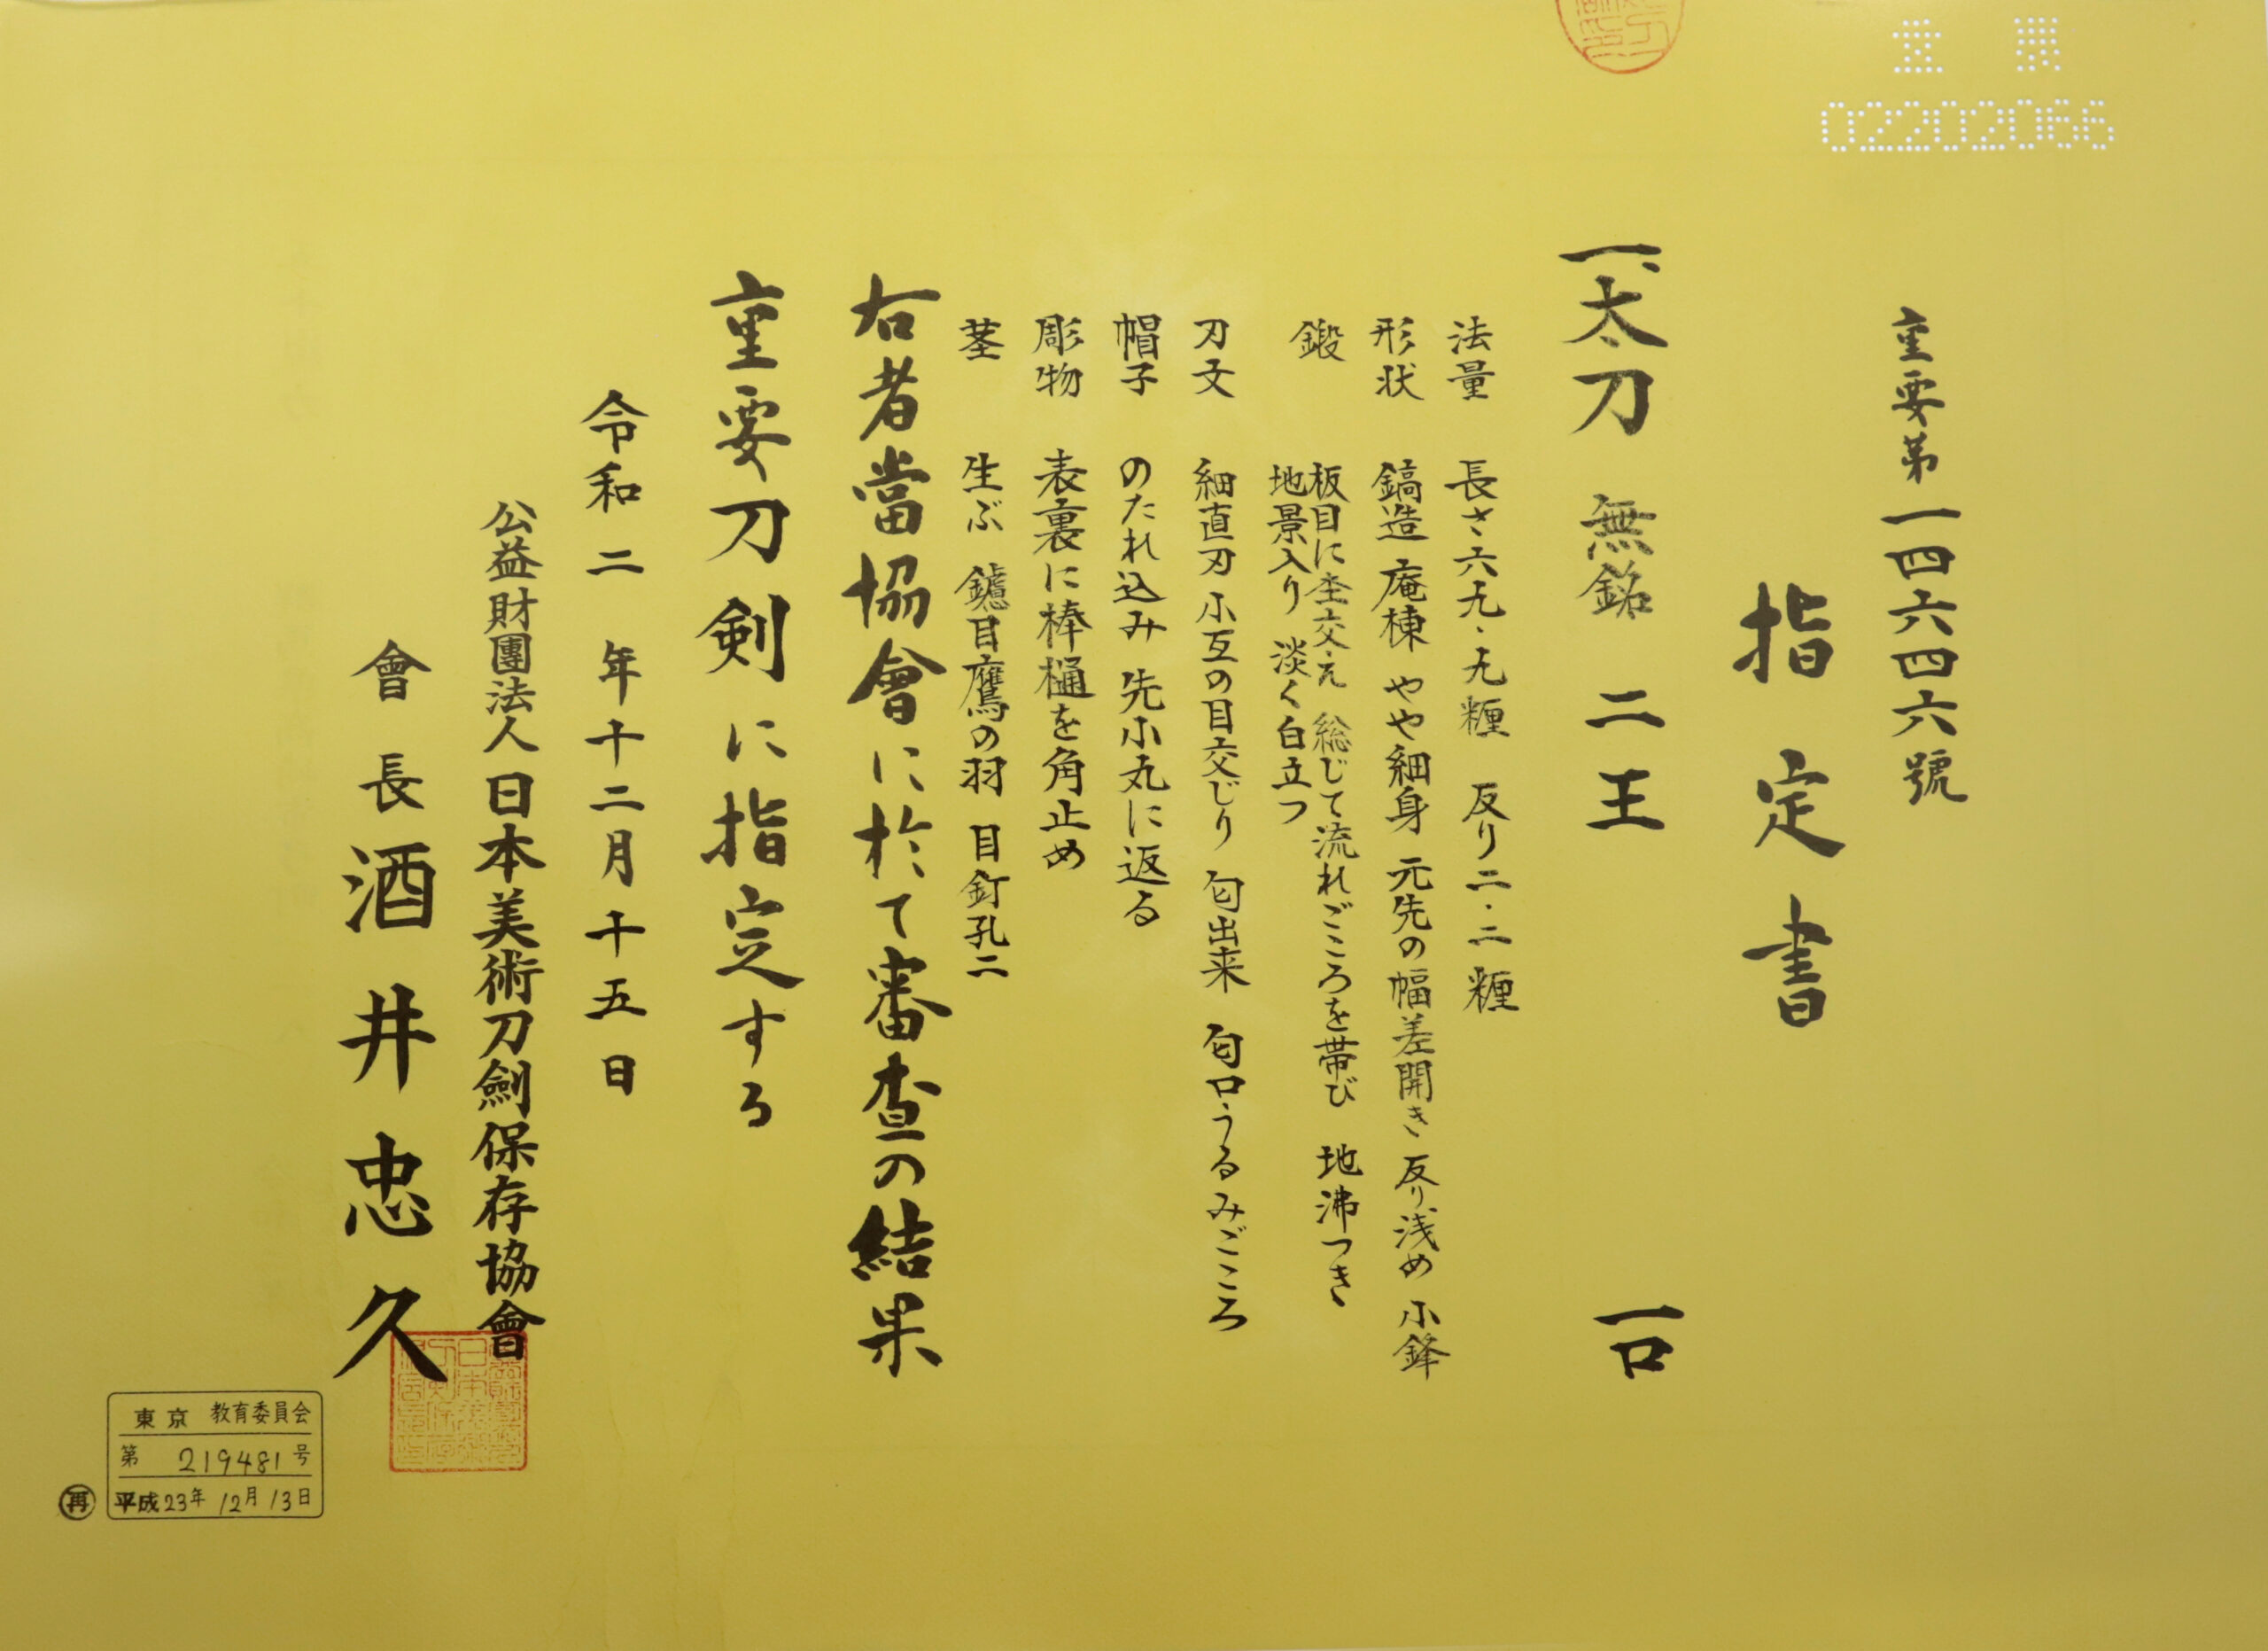 重要
02202066
重要第一四六四六號
指定書
一、太刀 無銘 二王 一口
法量 長さ六九・九糎 反り二・二糎
形状 鎬造 庵棟 やや細身 元先の幅差開き 反り浅め 小鋒
鍛 板目に杢交え 総じて流れごころを帯び 地沸つき
地景入り 淡く白立つ
刃文 細直刃 小互の目交じり 匂出来 匂口うるみごころ
帽子 のたれ込み 先小丸に返る
彫物 表裏に棒樋を角止め
茎 生ぶ 鑢目鷹の羽 目釘孔二
右者當協會に於て審査の結果
重要刀剣に指定する
令和二年十二月十五日
公益財團法人日本美術刀劍保存協會
會長 酒井忠久
東京 教育委員会
第 219481 号
再 平成23年12月13日